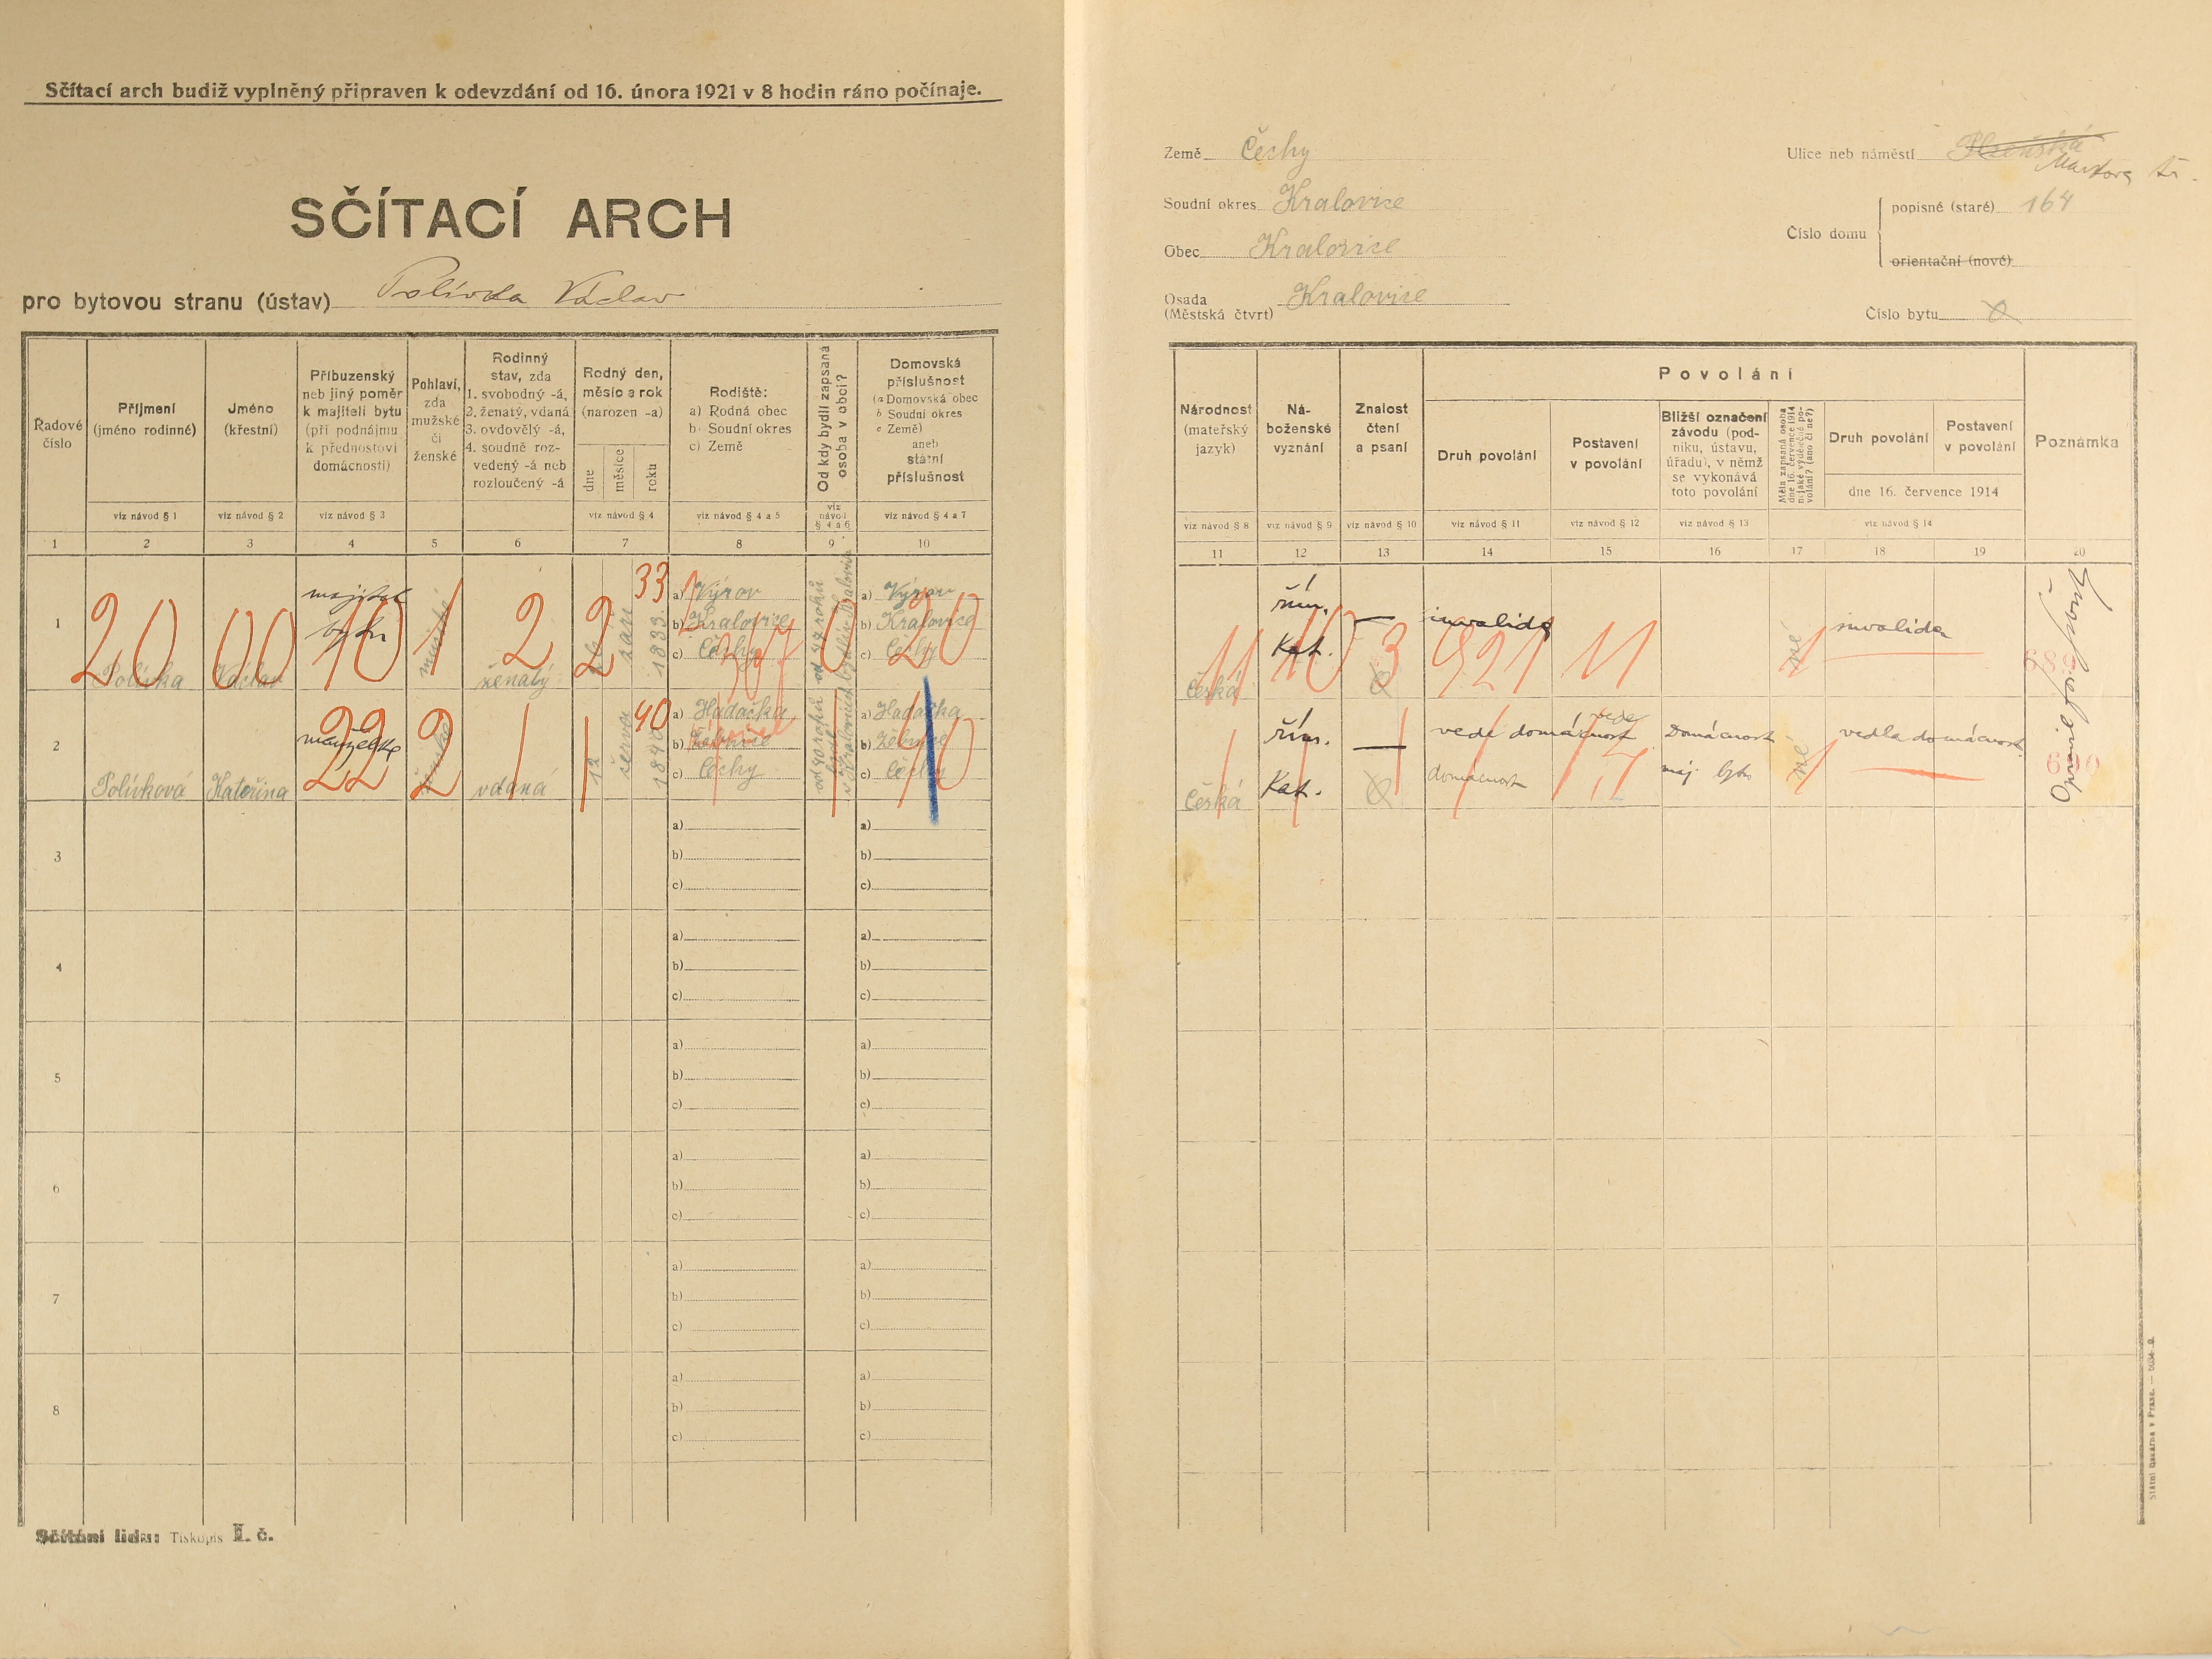 Sčítací arch budiž vyplněný připraven k odevzdání od 16. února 1921 v 8 hodin ráno počínaje.
SČÍTACÍ ARCH
pro bytovou stranu (ústav) Polívka Václav
Řadové číslo
Příjmení (jméno rodinné)
Jméno (křestní)
Příbuzenský neb jiný poměr k majiteli bytu (při podnájmu k přednostovi domácnosti)
Pohlaví, zda mužské či ženské
Rodinný stav, zda
1. svobodný -á,
2. ženatý, vdaná
3. ovdovělý -á,
4. soudně rozvedený -á neb rozloučený -á
Rodný den, měsíc a rok (narozen -a)
dne
měsíce
roku
Rodiště:
a) Rodná obec
b) Soudní okres
c) Země
Od kdy bydlí zapsaná osoba v obci?
Domovská příslušnost
(a Domovská obec
b Soudní okres
c Země)
aneb státní příslušnost
viz návod § 1
viz návod § 2
viz návod § 3
viz návod § 4
viz návod § 4 a 5
viz návod § 4 a 6
viz návod § 4 a 7
1 2 3 4 5 6 7 8 9 10
1
Polívka
Václav
majitel bytu
mužské
ženatý
září
1833
a) Výrov
b) Kralovice
c) Čechy
a) Výrov
b) Kralovice
c) Čechy
20 00 10 1 2 2 33
20
2
Polívková
Kateřina
manželka
vdaná
12
června
1840
a) Hadačka
b)
c) Čechy
a) Hadačka
b)
c) Čechy
22 2 1 1 40
3
a)
b)
c)
a)
b)
c)
4
a)
b)
c)
a)
b)
c)
5
a)
b)
c)
a)
b)
c)
6
a)
b)
c)
a)
b)
c)
7
a)
b)
c)
a)
b)
c)
8
a)
b)
c)
a)
b)
c)
Sčítání lidu: Tiskopis II. č.
Země Čechy
Soudní okres Kralovice
Obec Kralovice
Osada (Městská čtvrť) Kralovice
Ulice neb náměstí Plzeňská
tř.
Číslo domu
popisné (staré) 164
orientační (nové)
Číslo bytu
Národnost (mateřský jazyk)
Náboženské vyznání
Znalost čtení a psaní
Povolání
Druh povolání
Postavení v povolání
Bližší označení závodu (podniku, ústavu, úřadu), v němž se vykonává toto povolání
Měla zapsaná osoba dne 16. července 1914 nějaké výdělečné povolání? (ano či ne?)
Druh povolání
Postavení v povolání
dne 16. července 1914
Poznámka
viz návod § 8
viz návod § 9
viz návod § 10
viz návod § 11
viz návod § 12
viz návod § 13
viz návod § 14
11 12 13 14 15 16 17 18 19 20
Česká
řím. kat.
—
invalida
né
invalida
11 10 3 921 11 1
689
Česká
řím. kat.
—
vede domácnost
vede
domácnost
Domácnost
maj. bytu
né
vedla domácnost
690
Státní tiskárna v Praze.